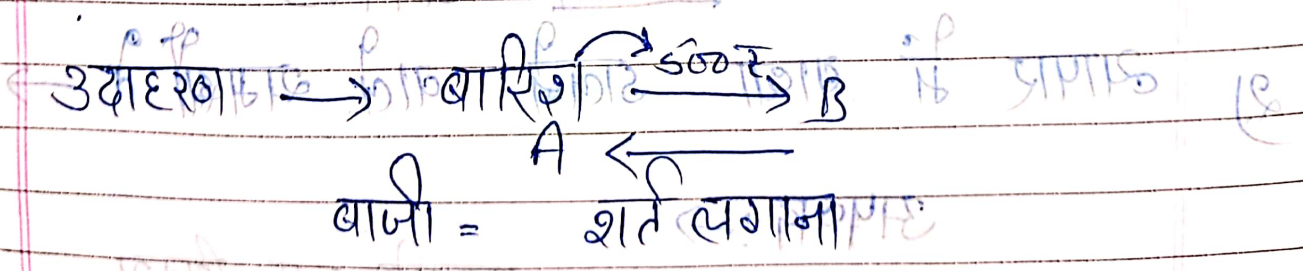 उदाहरण → बारिश 500 ₹ → B
A ←
बाजी = शर्त लगाना